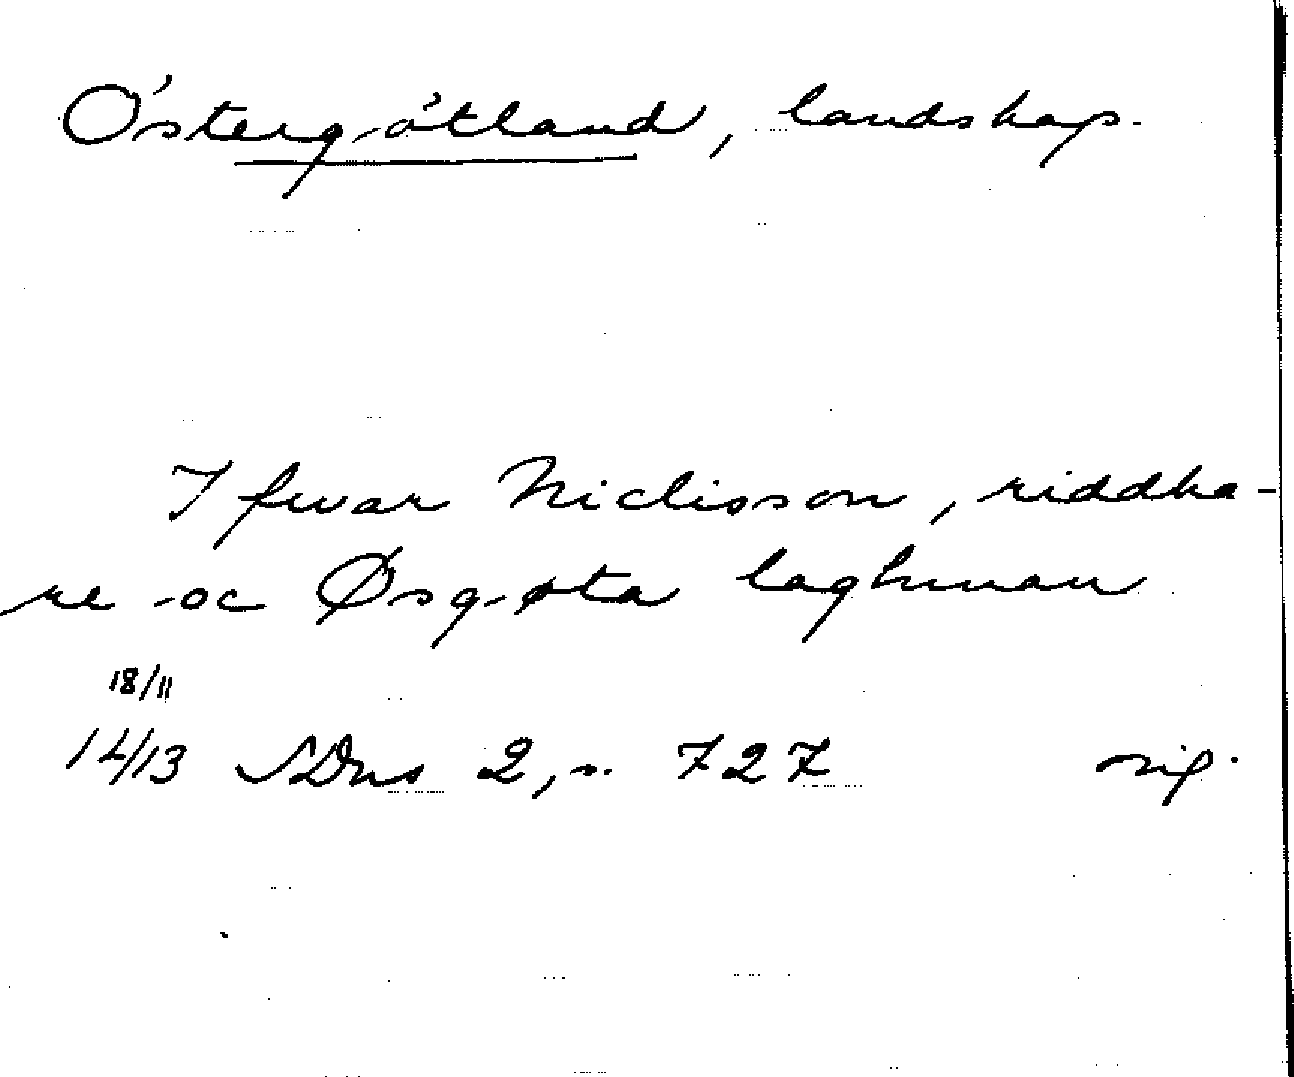 Östergötland, landskap.
Ifwar Niclisson, riddha-
re oc Øsgøta laghman
18/11
1413 SDns 2, s. 727 sig.